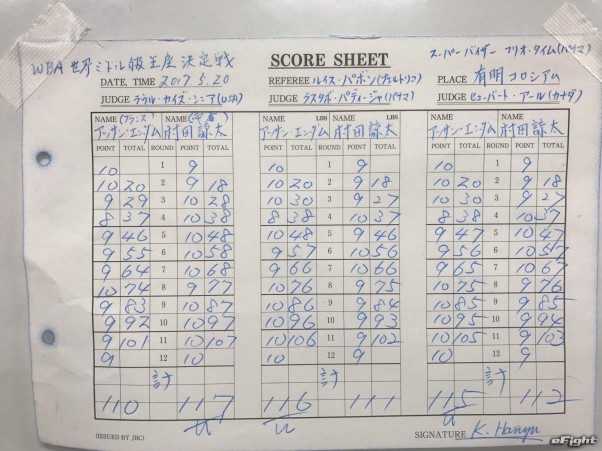 WBA 世界ミドル級王座決定戦 SCORE SHEET スーパーバイザー フリオ・タイム(パナマ)
DATE, TIME 2017.5.20 REFEREE ルイス・パボン(プエルトリコ) PLACE 有明コロシアム
JUDGE ラウル・カイズ・シニア(USA) JUDGE グスタボ・パディージャ(パナマ) JUDGE ヒューバート・アール(カナダ)
NAME (フランス) NAME NAME LBS NAME LBS NAME NAME
アッサン・エンダム 村田諒太 アッサン・エンダム 村田諒太 アッサン・エンダム 村田諒太
POINT TOTAL ROUND POINT TOTAL POINT TOTAL ROUND POINT TOTAL POINT TOTAL ROUND POINT TOTAL
10 1 9 10 1 9 10 1 9
10 20 2 9 18 10 20 2 9 18 10 20 2 9 18
9 29 3 10 28 10 30 3 9 27 10 30 3 9 27
8 37 4 10 38 8 38 4 10 37 8 38 4 10 37
9 46 5 10 48 10 48 5 9 46 9 47 5 10 47
9 55 6 10 58 9 57 6 10 56 9 56 6 10 57
9 64 7 10 68 9 66 7 10 66 9 65 7 10 67
10 74 8 9 77 10 76 8 9 75 10 75 8 9 76
9 83 9 10 87 10 86 9 9 84 10 85 9 9 85
9 92 10 10 97 10 96 10 9 93 10 95 10 9 94
9 101 11 10 107 10 106 11 9 102 10 105 11 9 103
9 12 10 10 12 9 10 12 9
計 計 計
110 117 116 111 115 112
(ISSUED BY JBC) SIGNATURE K. Hanyu
eFight